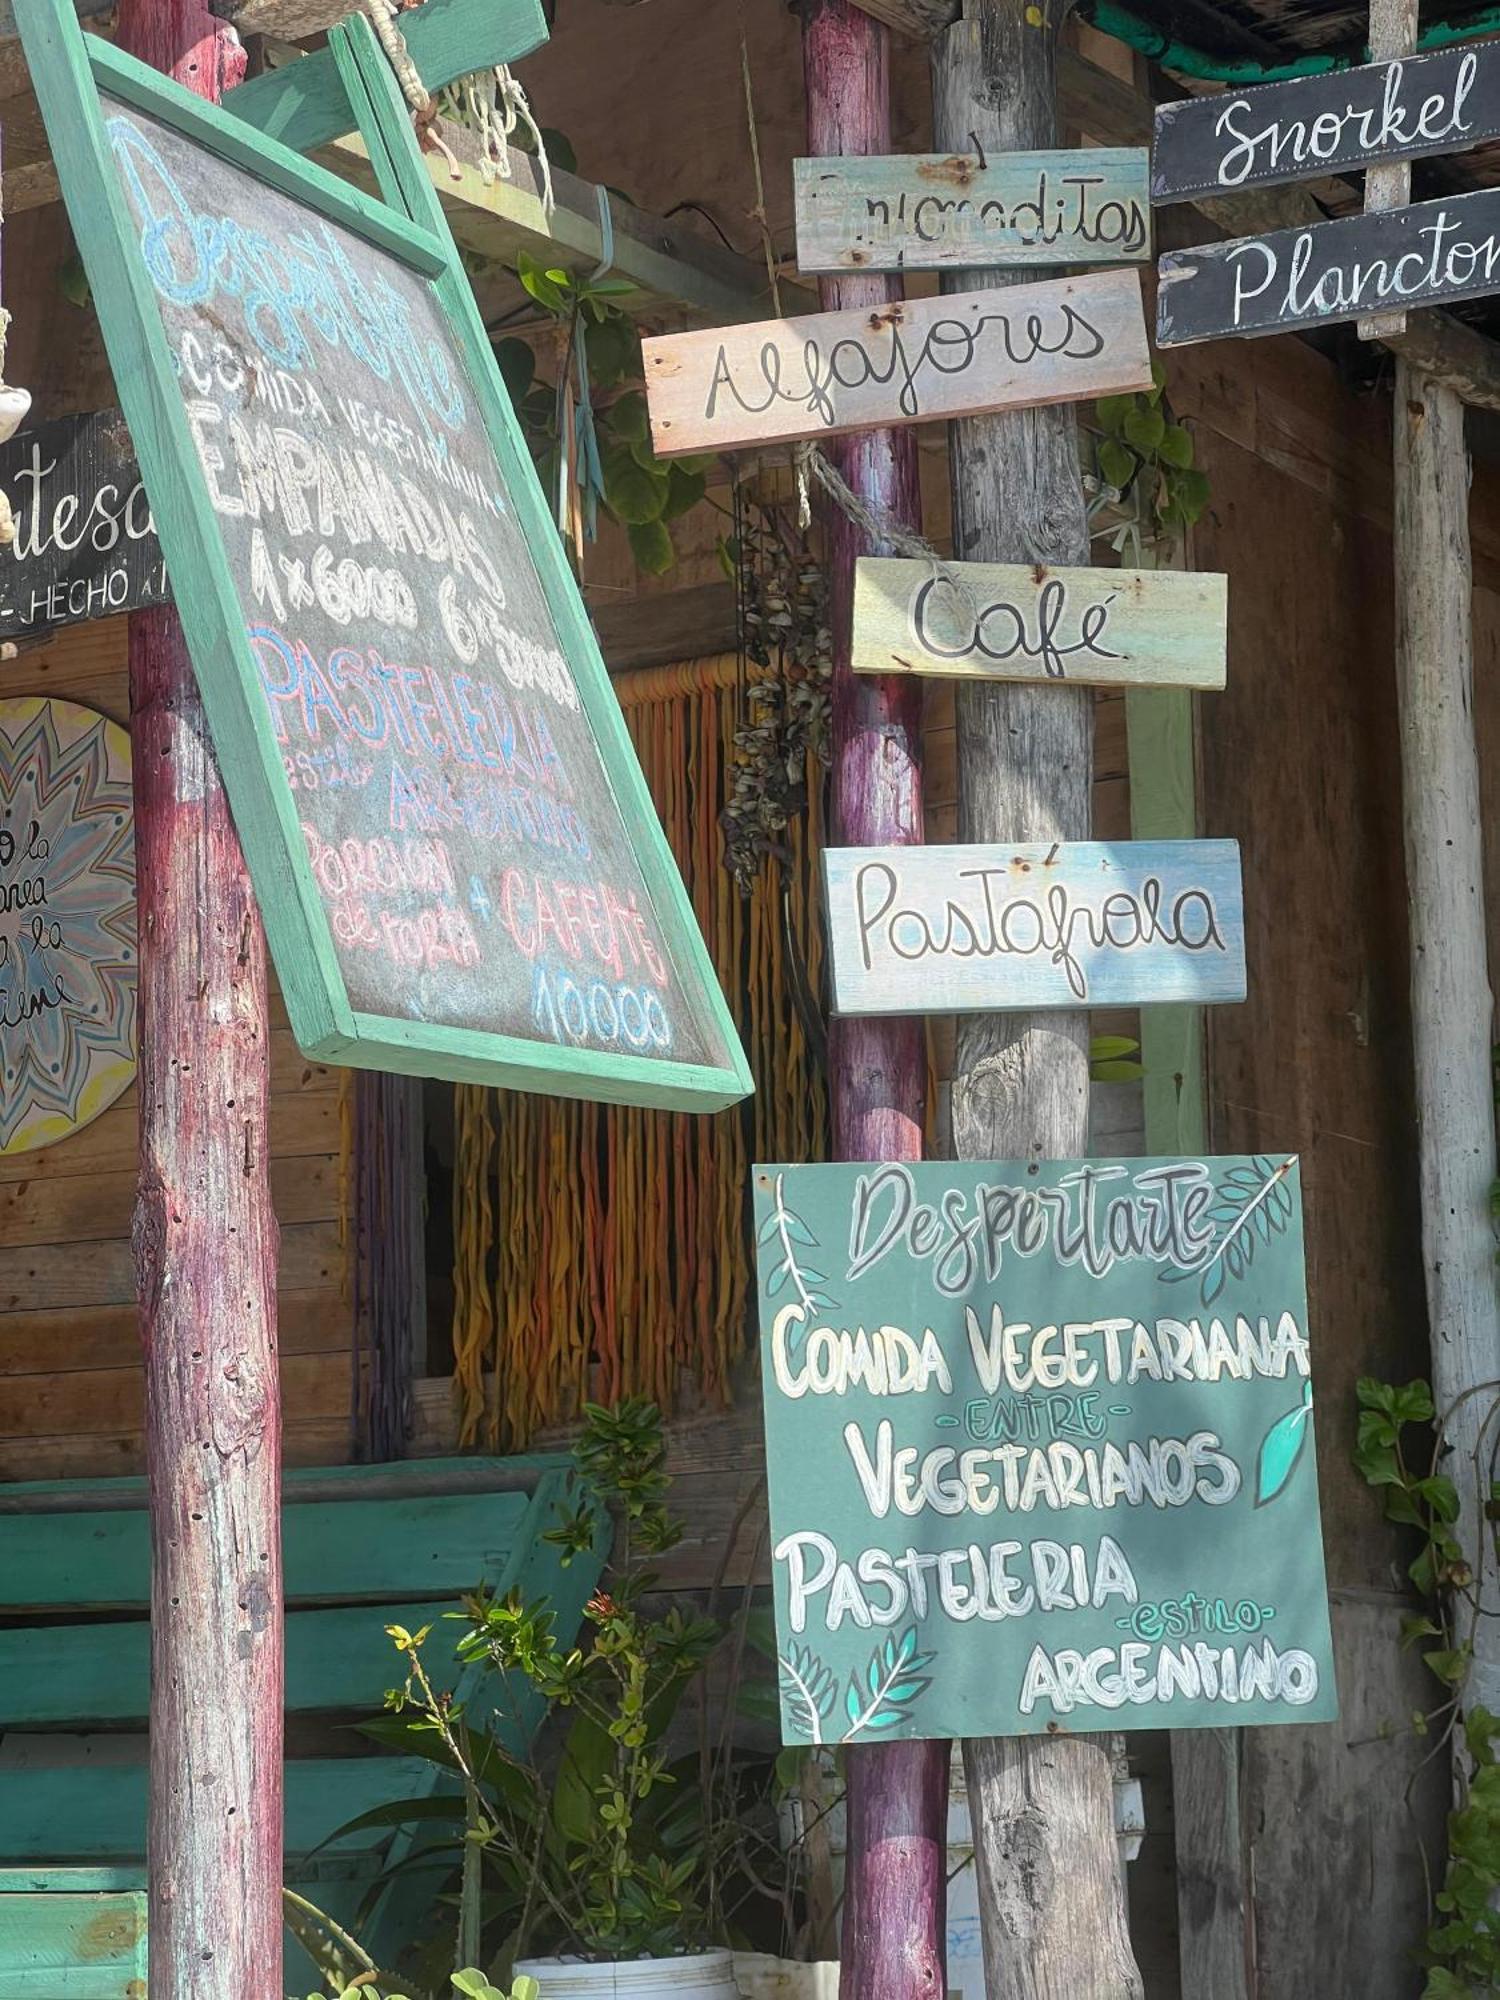 Despertarte
COMIDA VEGETARIANA
EMPANADAS
1x6000 6x30000
PASTELERIA
estilo
ARGENTINO
PORCION
de TORTA + CAFE/TÉ
10000
HECHO A
la
la
Alfajores
Café
Pastafrola
Snorkel
Plancton
Despertarte
COMIDA VEGETARIANA
-ENTRE-
VEGETARIANOS
PASTELERIA
-estilo-
ARGENTINO